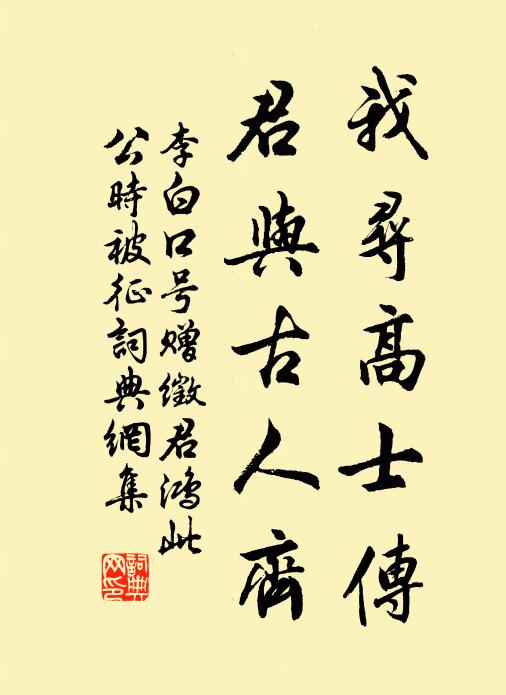 我尋高士傳
君與古人齊
李白口号贈徵君鴻此
公時被征詞典網集
詞典網印